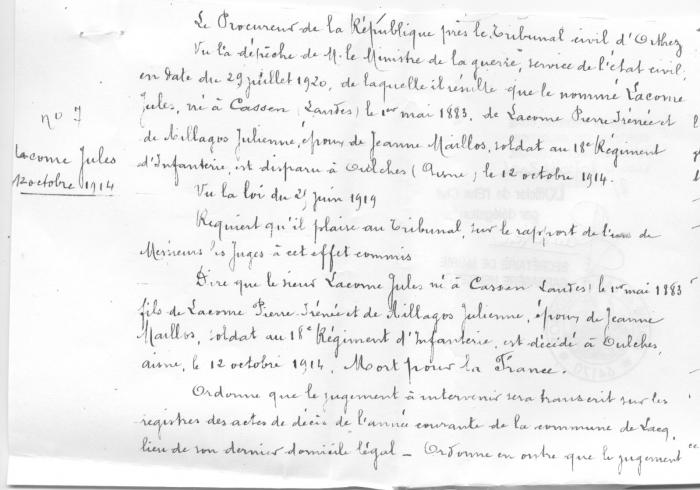 Le Procureur de la République près le Tribunal civil d'Orthez
Vu la dépêche de M. le Ministre de la guerre, service de l'état civil,
en date du 29 juillet 1920, de laquelle il résulte que le nommé Lacome
Jules, né à Cassen (Landes) le 1er mai 1883, de Lacome Pierre Irénée et
no 7
de Millagos Julienne, époux de Jeanne Maillos, soldat au 18e Régiment
Lacome Jules
d'Infanterie, est disparu à Oulches (Aisne) le 12 octobre 1914.
12 octobre 1914
Vu la loi du 25 juin 1919
Requiert qu'il plaise au Tribunal, sur le rapport de l'un de
Messieurs les Juges à cet effet commis
Dire que le sieur Lacome Jules né à Cassen Landes) le 1er mai 1883
fils de Lacome Pierre Irénée et de Millagos Julienne, époux de Jeanne
Maillos, soldat au 18e Régiment d'Infanterie, est décédé à Oulches,
aisne, le 12 octobre 1914, Mort pour la France.
Ordonne que le jugement à intervenir sera transcrit sur les
registres des actes de décès de l'année courante de la commune de Lacq,
lieu de son dernier domicile légal - Ordonne en outre que le jugement